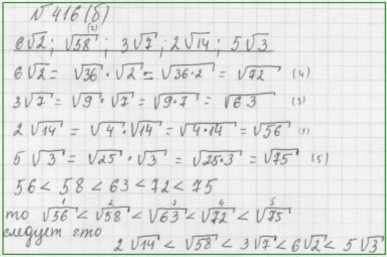 №416(б)
6√2; √58 (2); 3√7; 2√14; 5√3
6√2 = √36·√2 = √36·2 = √72 (4)
3√7 = √9·√7 = √9·7 = √63 (3)
2√14 = √4·√14 = √4·14 = √56 (1)
5√3 = √25·√3 = √25·3 = √75 (5)
56 < 58 < 63 < 72 < 75
1 2 3 4 5
то √56 < √58 < √63 < √72 < √75
следует что
2√14 < √58 < 3√7 < 6√2 < 5√3